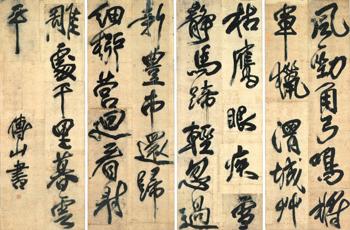 風勁角弓鳴將
軍獵渭城艸
枯鷹眼疾雪
靜馬蹄輕忽過
新豐市還歸
細柳營迴看射
雕處千里暮雲
平 傅山書